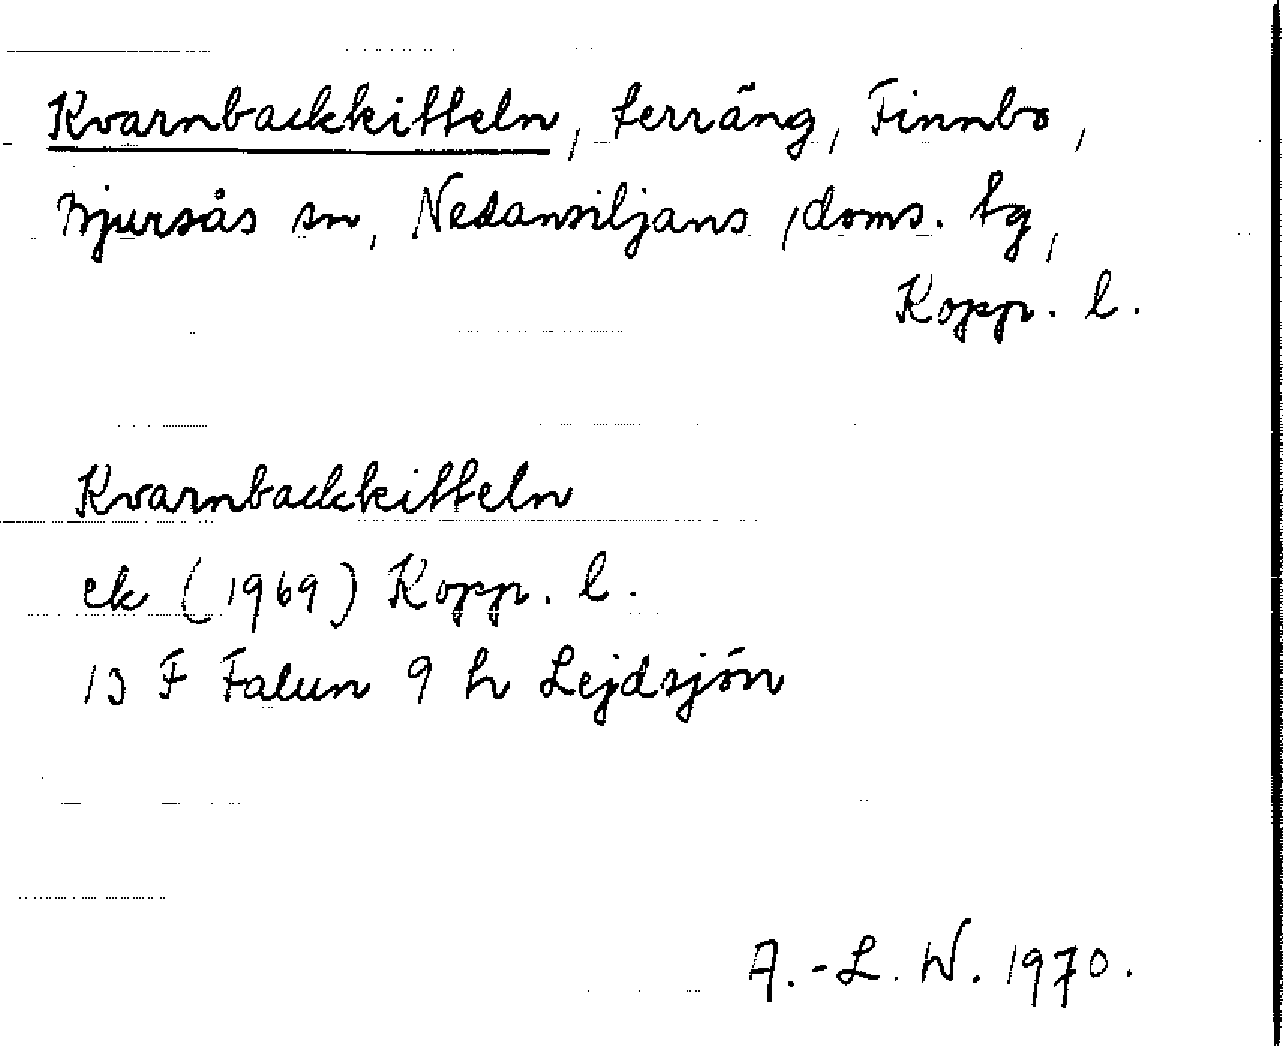 Kvarnbackkitteln, terräng, Finnbo,
Bjursås sn, Nedansiljans doms. tg,
Kopp. l.
Kvarnbackkitteln
ek (1969) Kopp. l.
13 F Falun 9 h Lejdsjön
A.-L. W. 1970.